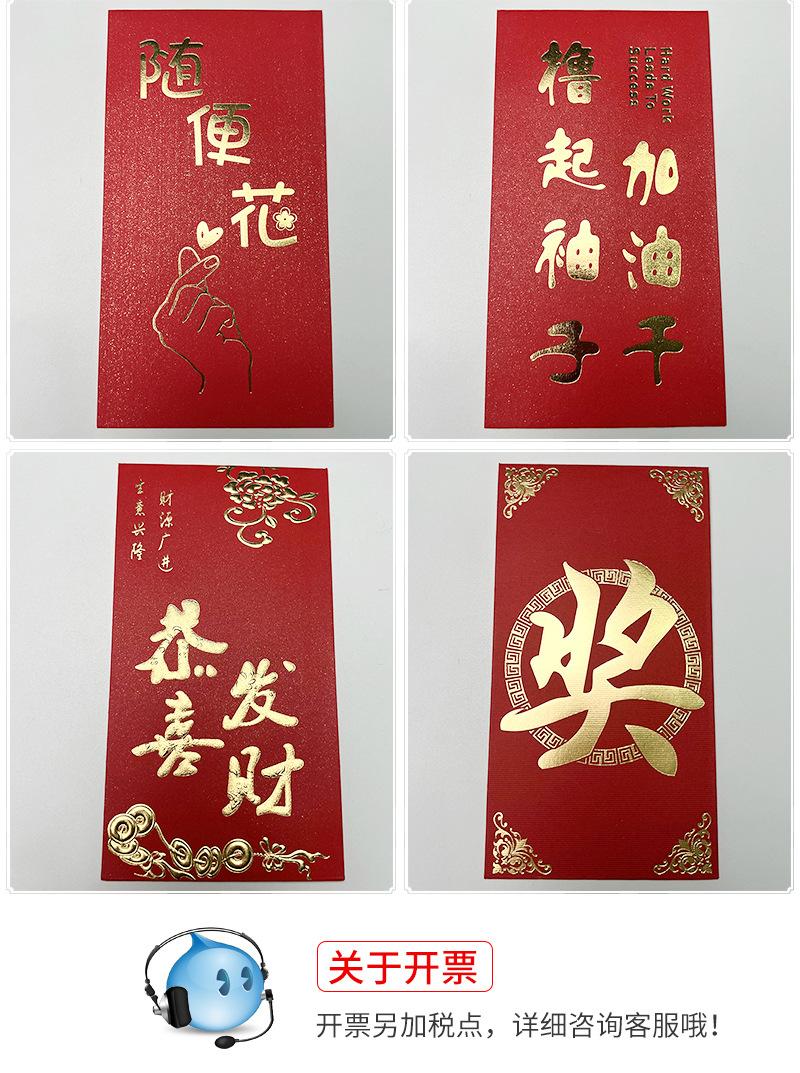 随
便
花
撸起袖子
加油干
Hard Work
Leads To
Success
生意兴隆
财源广进
恭喜
发财
奖
关于开票
开票另加税点，详细咨询客服哦！